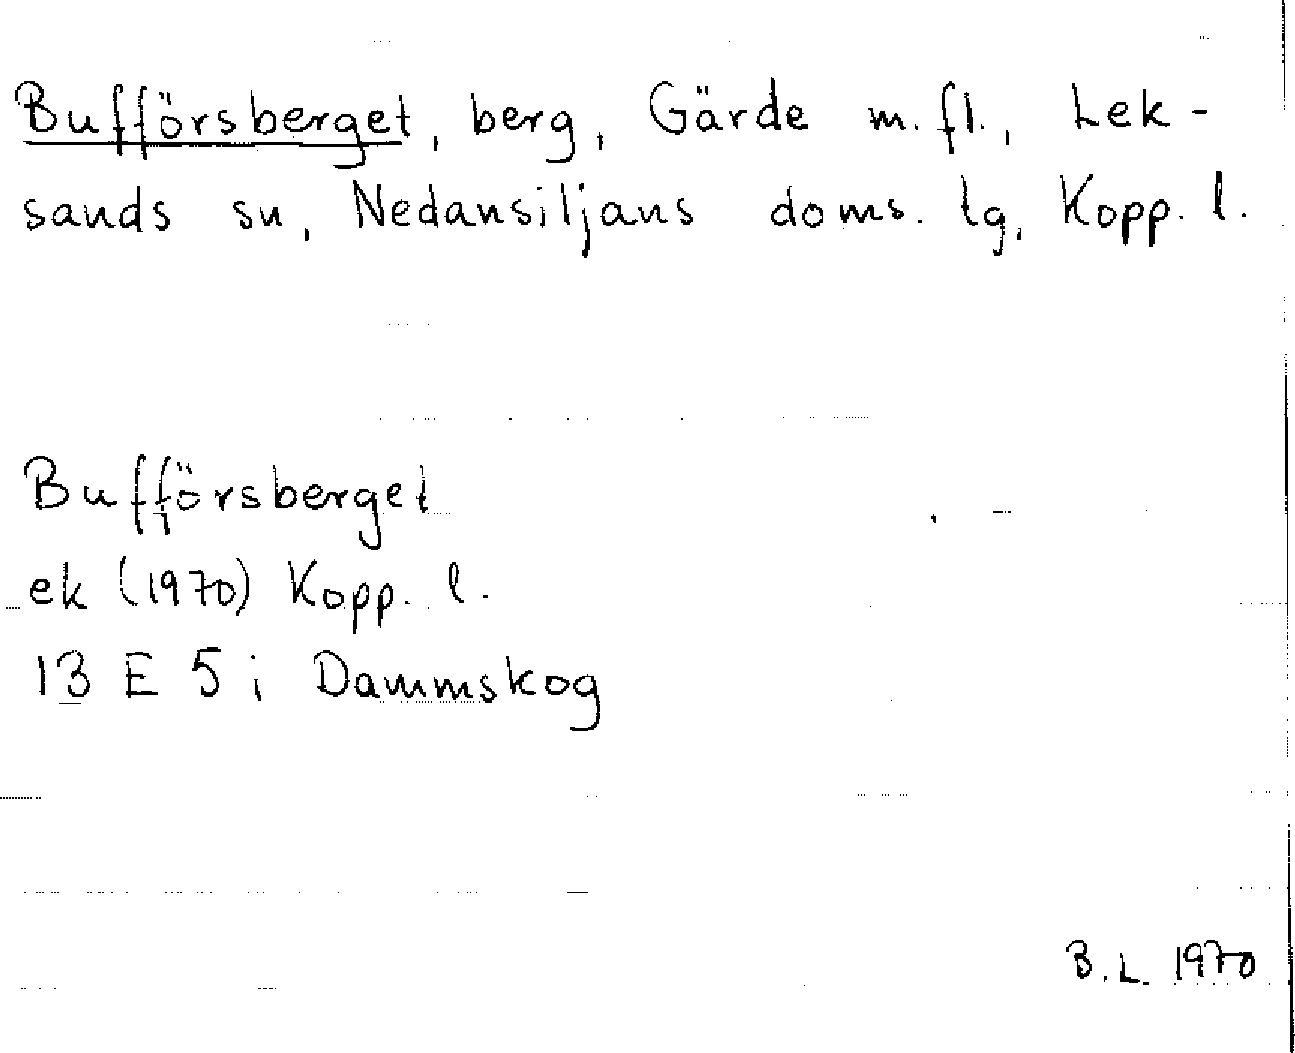 Bufförsberget, berg, Gärde m.fl., Lek-
sands sn, Nedansiljans doms. lg, Kopp. l.
Bufförsberget
ek (1970) Kopp. l.
13 E 5 i Dammskog
B.L. 1970